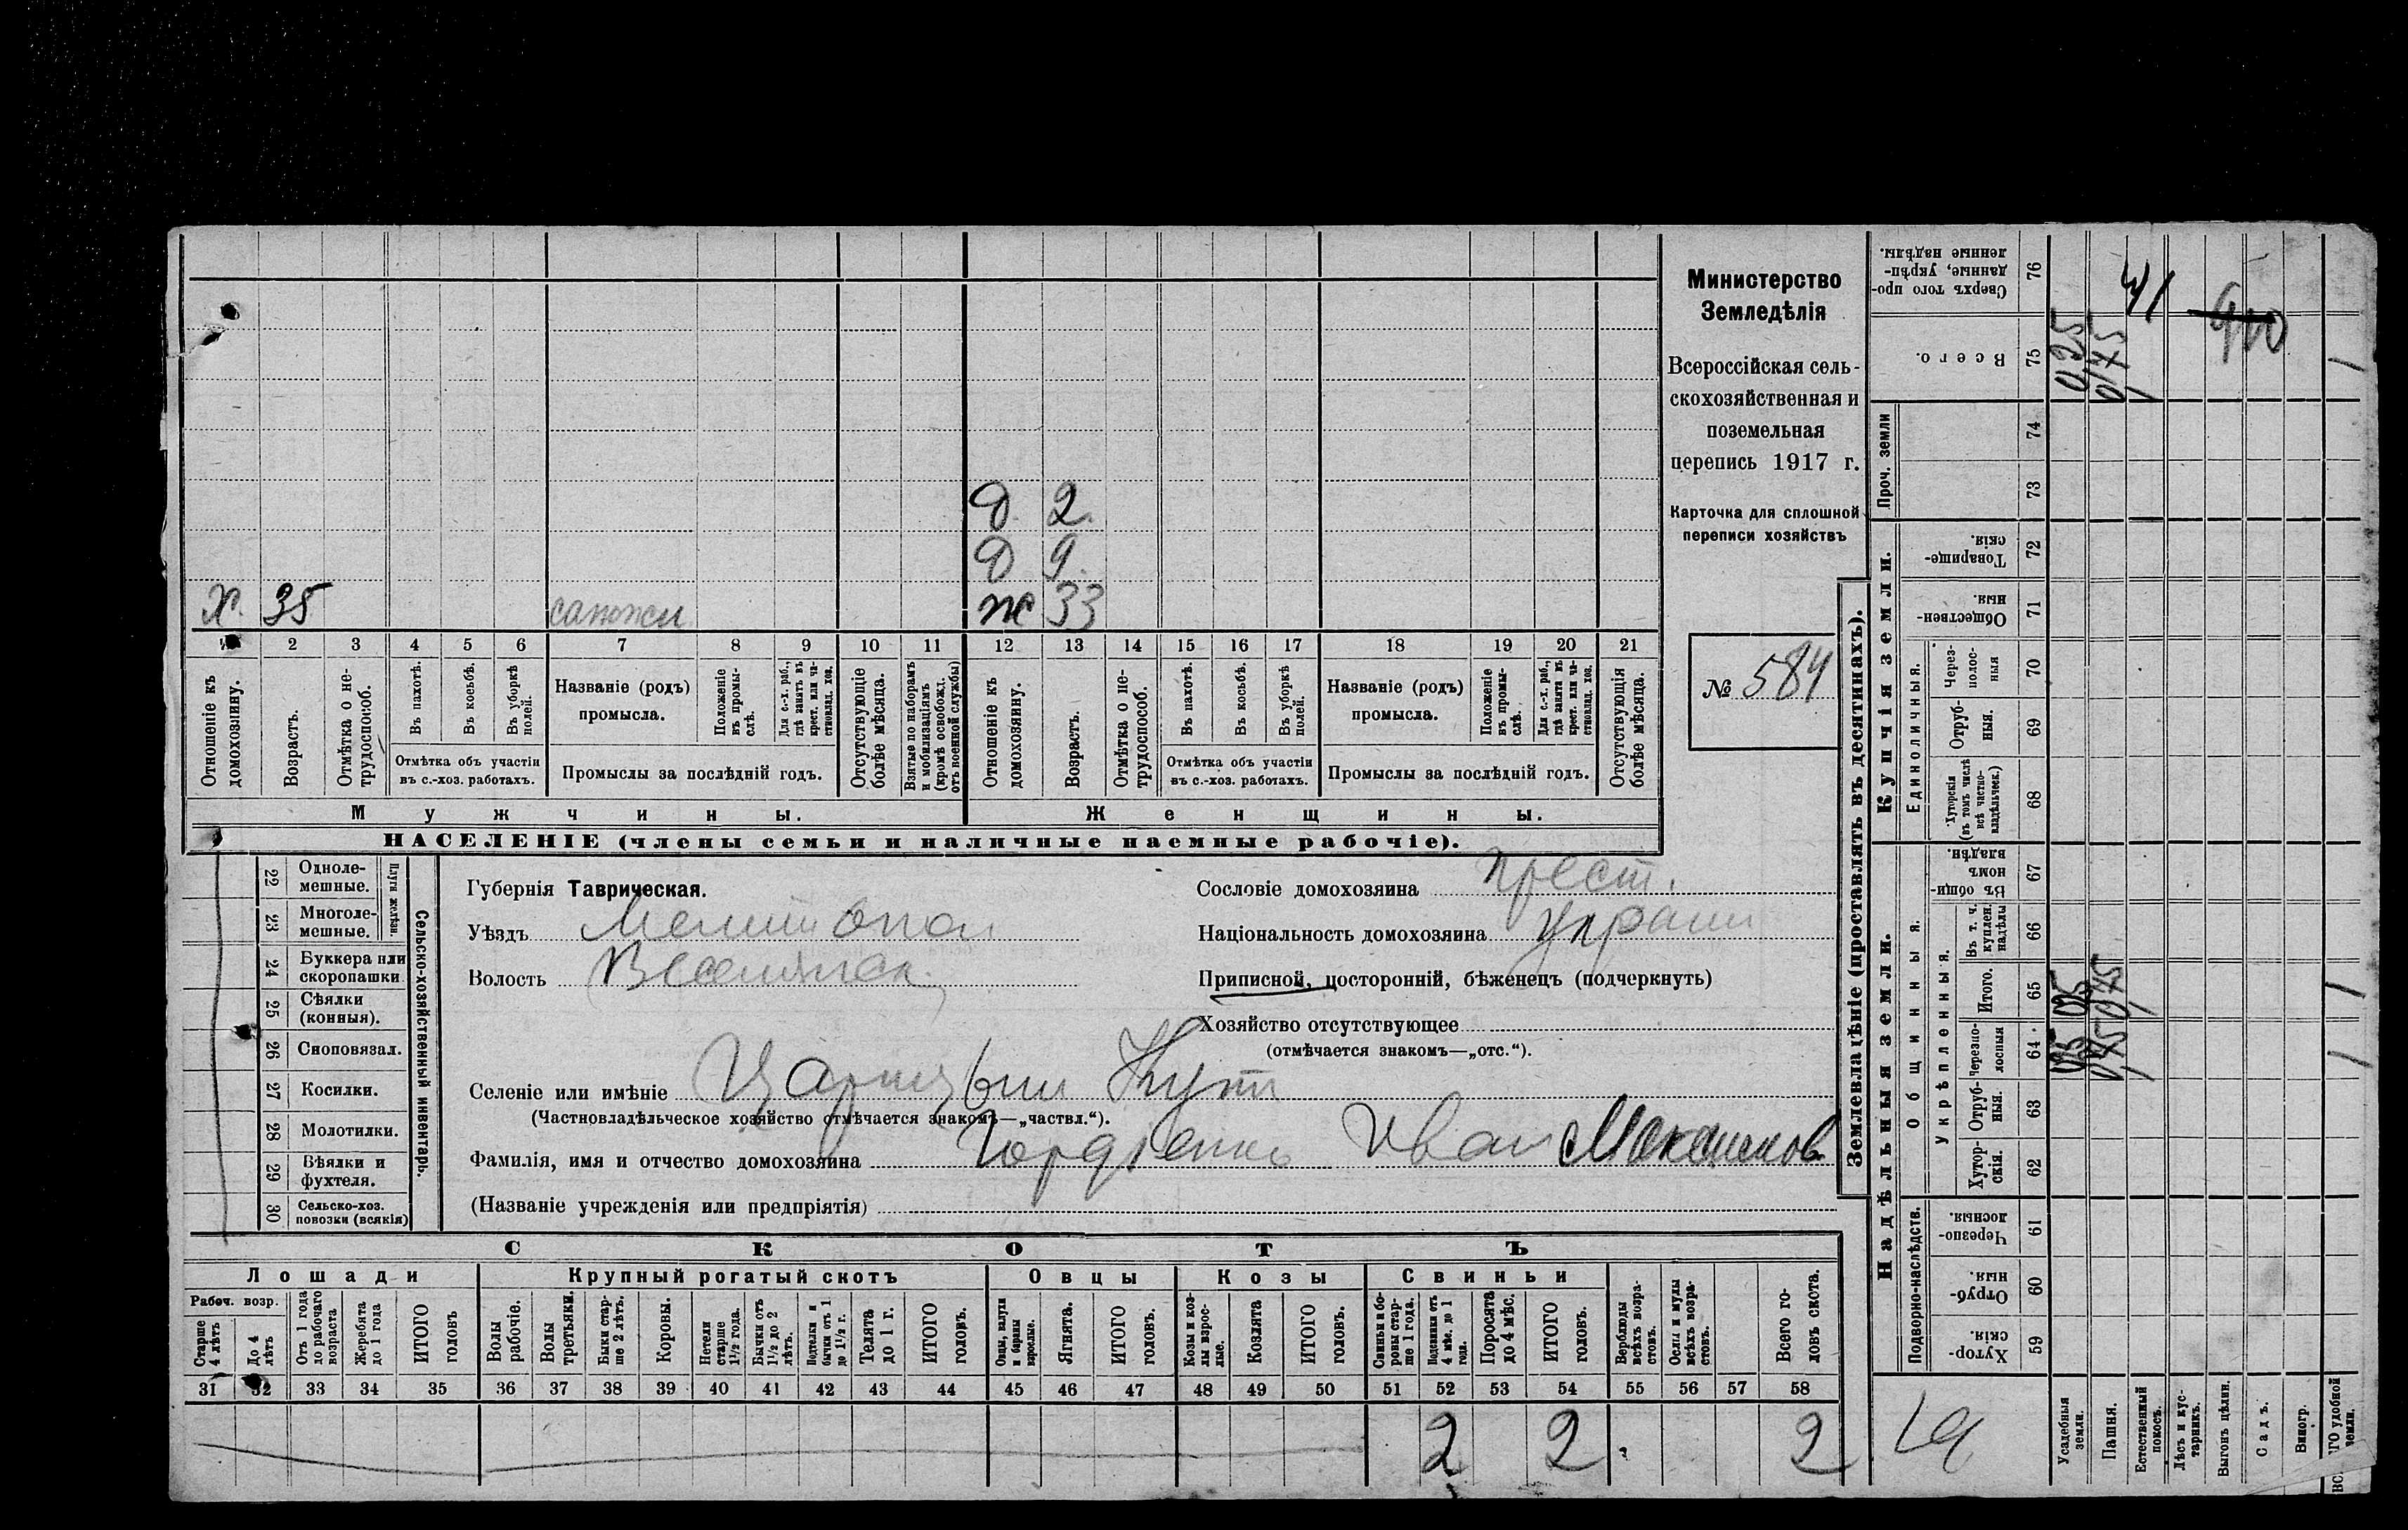 Министерство
Земледѣлія
Всероссійская сель-
скохозяйственная и
поземельная
перепись 1917 г.
Карточка для сплошной
переписи хозяйствъ
№ 584
Д. 2.
Д 9.
Х. 35 сапожн ж 33
1 2 3 4 5 6 7 8 9 10 11 12 13 14 15 16 17 18 19 20 21
Отношеніе къ домохозяину.
Возрастъ.
Отмѣтка о не-трудоспособ.
Въ пахотѣ.
Въ косьбѣ.
Въ уборкѣ полей.
Отмѣтка объ участіи въ с.-хоз. работахъ.
Названіе (родъ) промысла.
Положеніе въ промы-слѣ.
Для с.-х. раб., гдѣ занятъ въ крест. или ча-стновлад. хоз.
Промыслы за послѣдній годъ.
Отсутствующіе болѣе мѣсяца.
Взятые по наборамъ и мобилизаціямъ (кромѣ освобожд. отъ военной службы)
Отношеніе къ домохозяину.
Возрастъ.
Отмѣтка о не-трудоспособ.
Въ пахотѣ.
Въ косьбѣ.
Въ уборкѣ полей.
Отмѣтка объ участіи въ с.-хоз. работахъ.
Названіе (родъ) промысла.
Положеніе въ промы-слѣ.
Для с.-х. раб., гдѣ занята въ крест. или ча-стновлад. хоз.
Промыслы за послѣдній годъ.
Отсутствующія болѣе мѣсяца.
Мужчины. Женщины.
НАСЕЛЕНІЕ (члены семьи и наличные наемные рабочіе).
22 Одноле-мешные.
23 Многоле-мешные.
Плуги желѣзн.
24 Буккера или скоропашки.
25 Сѣялки (конныя).
26 Сноповязал.
27 Косилки.
28 Молотилки.
29 Вѣялки и фухтеля.
30 Сельско-хоз. повозки (всякія)
Сельско-хозяйственный инвентарь.
Губернія Таврическая.
Уѣздъ Мелитопол
Волость Веселянск.
Сословіе домохозяина крест.
Національность домохозяина украин
Приписной, посторонній, бѣженецъ (подчеркнуть)
Хозяйство отсутствующее
(отмѣчается знакомъ—„отс.“).
Селеніе или имѣніе Царицын Кут
(Частновладѣльческое хозяйство отмѣчается знакомъ—„частвл.“).
Фамилія, имя и отчество домохозяина Гордіенко Иван Максимов
(Названіе учрежденія или предпріятія)
СКОТЪ
Лошади Крупный рогатый скотъ Овцы Козы Свиньи
Рабоч. возр.
Старше 4 лѣтъ
До 4 лѣтъ
Отъ 1 года до рабочаго возраста
Жеребята до 1 года
ИТОГО головъ
Волы рабочіе.
Волы третьяки.
Быки стар-ше 2 лѣтъ.
Коровы.
Нетели старше 1½ года.
Бычки отъ 1½ до 2 лѣтъ.
Подтелки и бычки отъ 1 до 1½ г.
Телята до 1 г.
ИТОГО головъ.
Овцы, валухи и бараны взрослые.
Ягнята.
ИТОГО головъ.
Козы и коз-лы взрос-лые.
Козлята
ИТОГО головъ.
Свиньи и бо-ровы стар-ше 1 года.
Подсвинки отъ 4 мѣс. до 1 года.
Поросята до 4 мѣс.
ИТОГО головъ.
Верблюды всѣхъ возра-стовъ.
Ослы и мулы всѣхъ возра-стовъ.
Всего го-ловъ скота.
31 32 33 34 35 36 37 38 39 40 41 42 43 44 45 46 47 48 49 50 51 52 53 54 55 56 57 58
2 2 2
Землевладѣніе (проставлять въ десятинахъ).
Надѣльныя земли.
Купчія земли.
Проч. земли
Подворно-наслѣдств.
Общинныя.
Укрѣпленныя.
Единоличныя.
Хутор-скія. 59
Отруб-ныя. 60
Черезпо-лосныя. 61
Хутор-скія. 62
Отруб-ныя. 63
Черезпо-лосныя 64
Итого. 65
Въ т. ч. куплен. надѣлы 66
Въ общи-номъ владѣн. 67
Хуторскія (въ томъ числѣ всѣ частно-владѣльчек.) 68
Отруб-ныя. 69
Через-полос-ныя 70
Обществен-ныя. 71
Товарище-скія. 72
73
74
Всего. 75
Сверхъ того про-данные, укрѣп-ленные надѣлы. 76
Усадебныя земли. 025
Пашня. 0,75
Естественный покосъ.
Лѣсъ и кус-тарникъ.
Выгонъ цѣлин.
Садъ.
Виногр.
удобной земли. 1 1 1